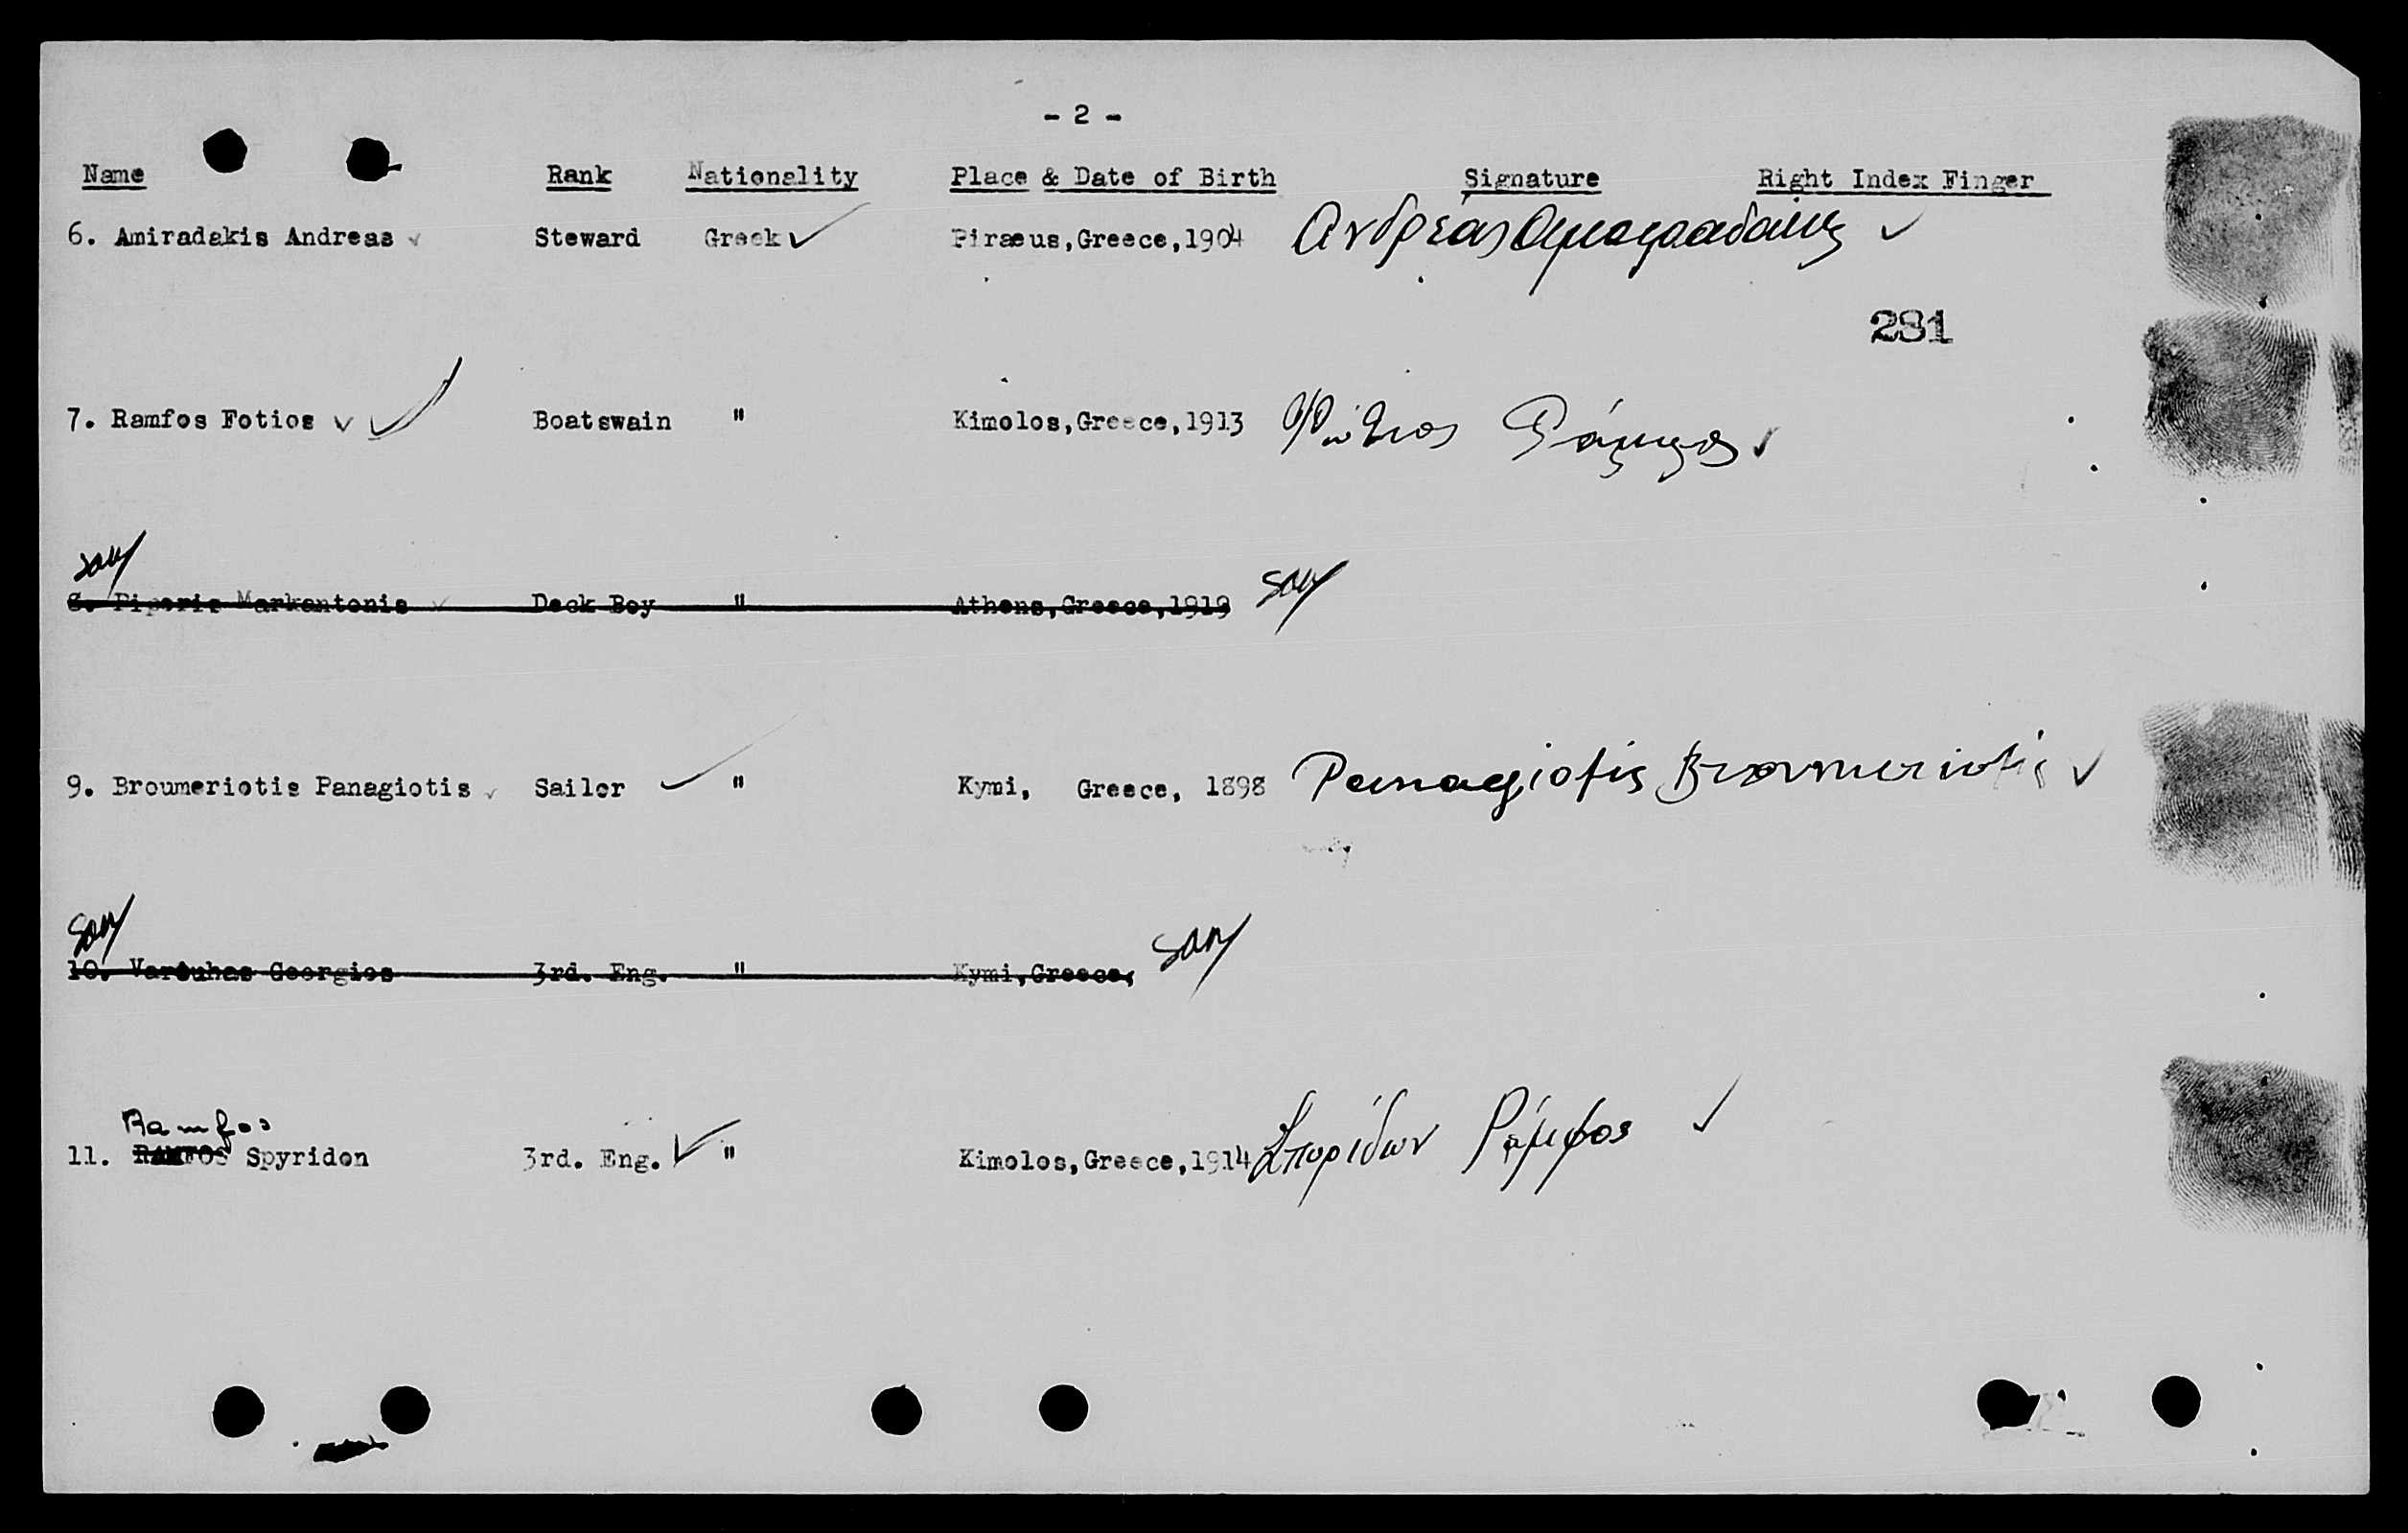 - 2 -
Name Rank Nationality Place & Date of Birth Signature Right Index Finger
6. Amiradakis Andreas Steward Greek Piraeus,Greece,1904 Ανδρεας
281
7. Ramfos Fotios Boatswain " Kimolos,Greece,1913 Φώτιος Ράμφος
8. Piperis Markantonis Deck Boy " Athens,Greece,1919
9. Broumeriotis Panagiotis Sailor " Kymi, Greece, 1898 Panagiotis Broumeriotis
10. Georgios 3rd. Eng. " Kymi,Greece,
Ramfos
11. RAMFOS Spyridon 3rd. Eng. " Kimolos,Greece,1914 Σπυρίδων Ράμφος